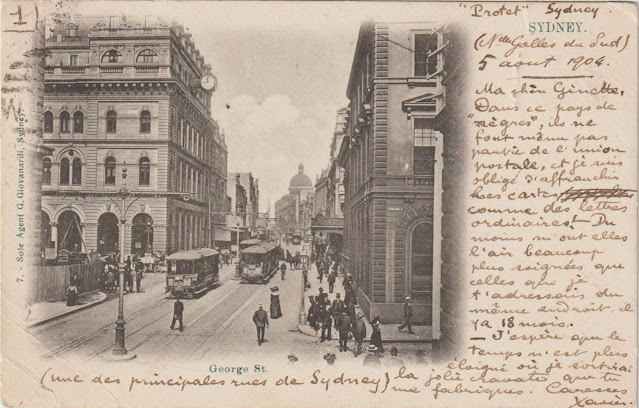 1)
"Protet" Sydney.
SYDNEY.
(Nlle Galles du Sud)
5 août 1904.
Ma chère Ginette,
Dans ce pays de
"nègres", ils ne
font même pas
partie de l'union
postale, et je suis
obligé d'affranchir
les cartes
comme des lettres
ordinaires! Du
moins m'ont elles
l'air beaucoup
plus soignées que
celles que je
t'adressons du
même endroit il
y a 18 mois.
— J'espère que le
temps n'est plus
éloigné où je sortirai
la jolie cravate que tu
me fabriques. Caresses
Xavier.
7. - Sole Agent G. Giovanardi, Sydney.
George St.
(une des principales rues de Sydney)